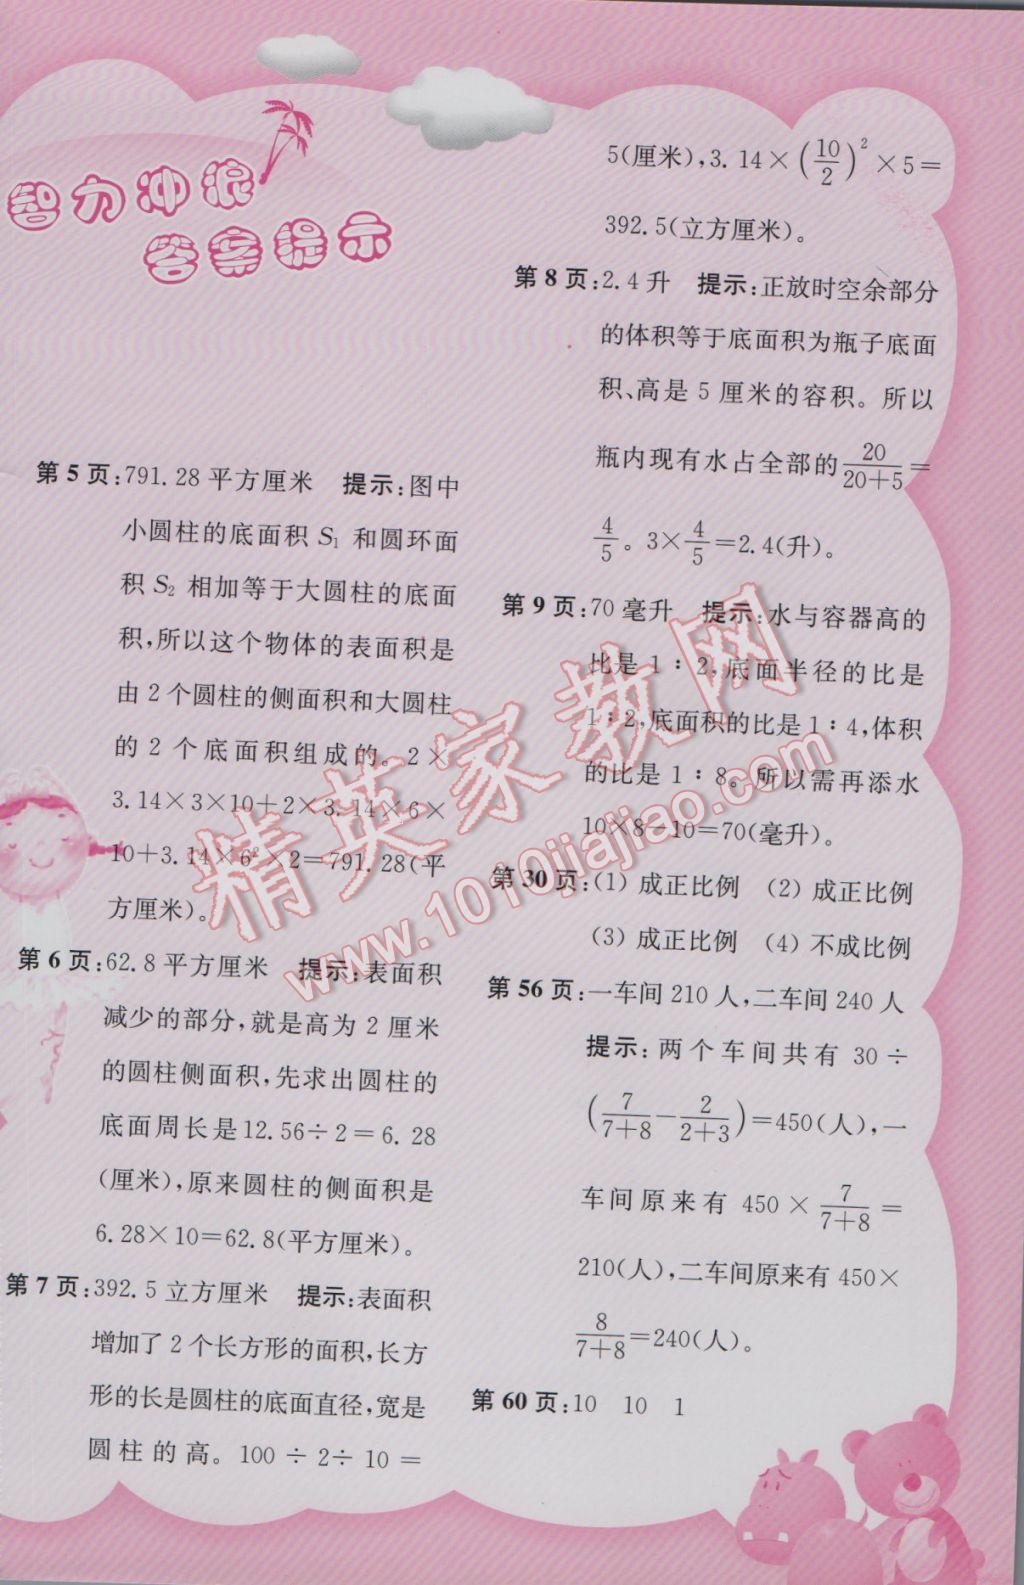 智力冲浪
答案提示
第5页:791.28平方厘米 提示:图中
小圆柱的底面积 S₁ 和圆环面
积 S₂ 相加等于大圆柱的底面
积,所以这个物体的表面积是
由2个圆柱的侧面积和大圆柱
的2个底面积组成的。2×
3.14×3×10+2×3.14×6×
10+3.14×6²×2=791.28(平
方厘米)。
第6页:62.8平方厘米 提示:表面积
减少的部分,就是高为2厘米
的圆柱侧面积,先求出圆柱的
底面周长是12.56÷2=6.28
(厘米),原来圆柱的侧面积是
6.28×10=62.8(平方厘米)。
第7页:392.5立方厘米 提示:表面积
增加了2个长方形的面积,长方
形的长是圆柱的底面直径,宽是
圆柱的高。100÷2÷10=
5(厘米),3.14×(10/2)²×5=
392.5(立方厘米)。
第8页:2.4升 提示:正放时空余部分
的体积等于底面积为瓶子底面
积、高是5厘米的容积。所以
瓶内现有水占全部的20/(20+5)=
4/5。3×4/5=2.4(升)。
第9页:70毫升 提示:水与容器高的
比是1∶2,底面半径的比是
1∶2,底面积的比是1∶4,体积
的比是1∶8。所以需再添水
10×8-10=70(毫升)。
第30页:(1) 成正比例 (2) 成正比例
(3) 成正比例 (4) 不成比例
第56页:一车间210人,二车间240人
提示:两个车间共有 30÷
(7/(7+8)-2/(2+3))=450(人),一
车间原来有 450×7/(7+8)=
210(人),二车间原来有450×
8/(7+8)=240(人)。
第60页:10 10 1
精英家教网
www.1010jiajiao.com